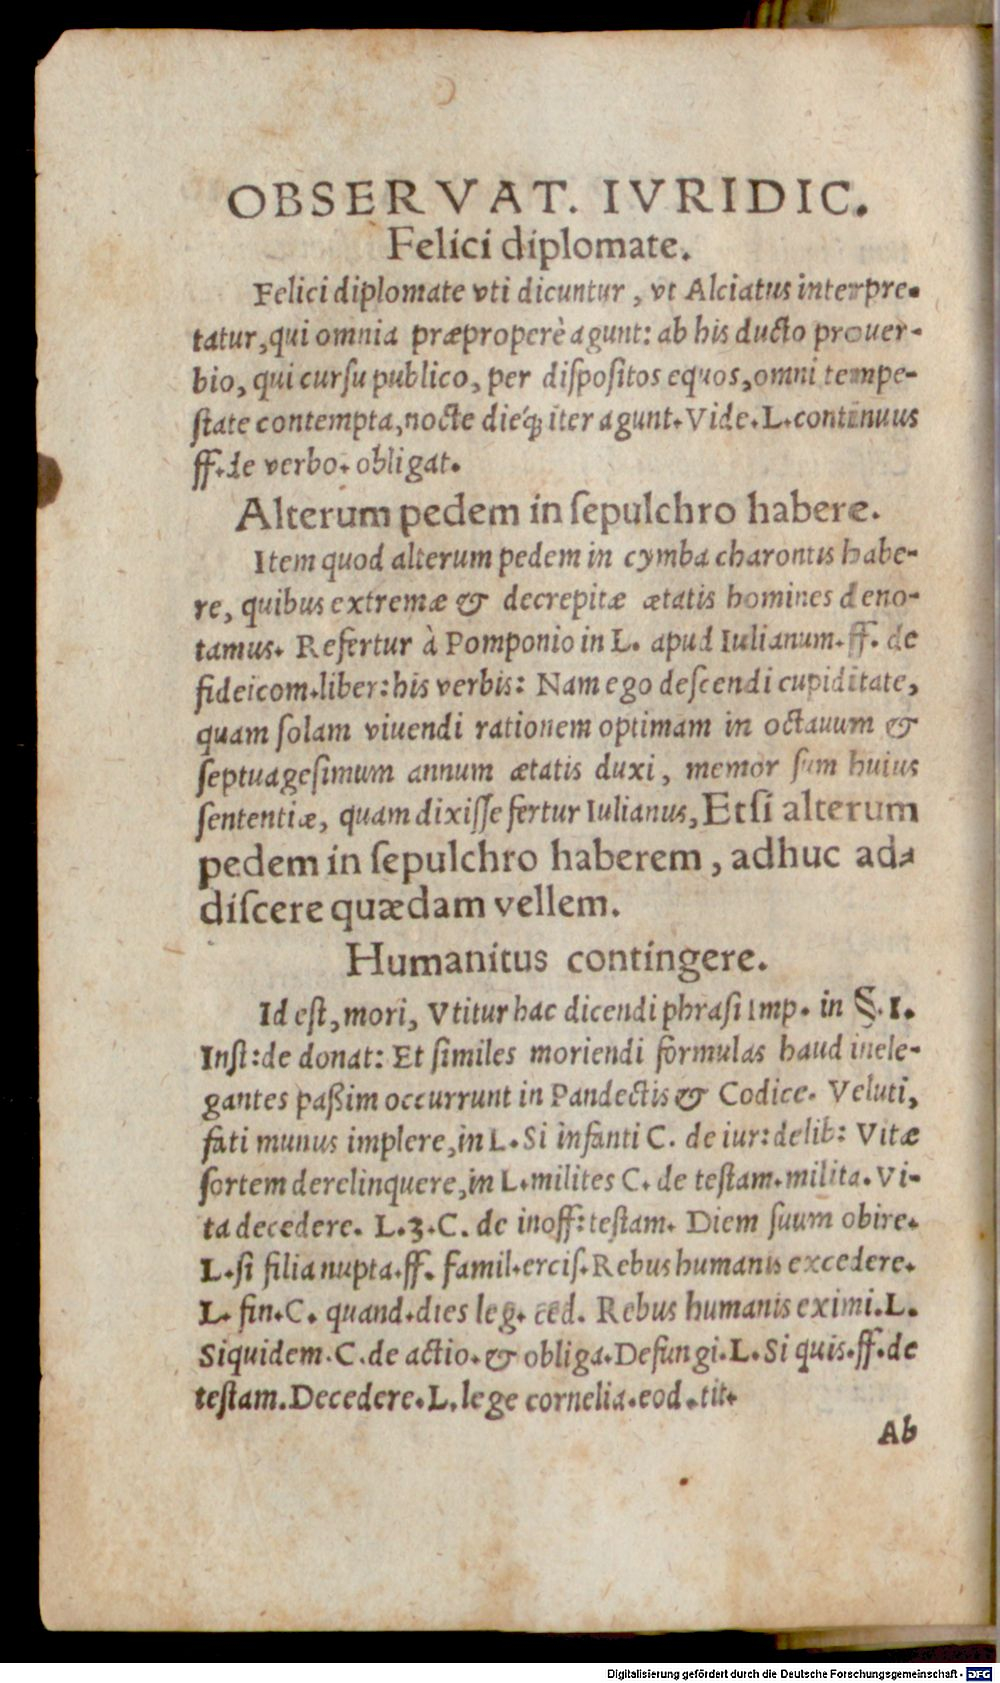 OBSERVAT. IVRIDIC.
Felici diplomate.
Felici diplomate vti dicuntur, vt Alciatus interpre-
tatur, qui omnia præproperè agunt: ab his ducto prouer-
bio, qui cursu publico, per dispositos equos, omni tempe-
state contempta, nocte dieq́; iter agunt. Vide. L. continuus
ff. de verbo. obligat.
Alterum pedem in sepulchro habere.
Item quod alterum pedem in cymba charontis habe-
re, quibus extremæ & decrepitæ ætatis homines deno-
tamus. Refertur à Pomponio in L. apud Iulianum. ff. de
fideicom. liber: his verbis: Nam ego descendi cupiditate,
quam solam viuendi rationem optimam in octauum &
septuagesimum annum ætatis duxi, memor sum huius
sententiæ, quam dixisse fertur Iulianus, Etsi alterum
pedem in sepulchro haberem, adhuc ad-
discere quædam vellem.
Humanitus contingere.
Id est, mori, Vtitur hac dicendi phrasi Imp. in §. 1.
Inst: de donat: Et similes moriendi formulas haud inele-
gantes paßim occurrunt in Pandectis & Codice. Veluti,
fati munus implere, in L. Si infanti C. de iur: delib: Vitæ
sortem derelinquere, in L. milites C. de testam. milita. Vi-
ta decedere. L. 3. C. de inoff: testam. Diem suum obire.
L. si filia nupta. ff. famil. ercis. Rebus humanis excedere.
L. fin. C. quand. dies leg. ced. Rebus humanis eximi. L.
Siquidem. C. de actio. & obliga. Defungi. L. Si quis. ff. de
testam. Decedere. L. lege cornelia. eod. tit.
Ab
Digitalisierung gefördert durch die Deutsche Forschungsgemeinschaft - DFG